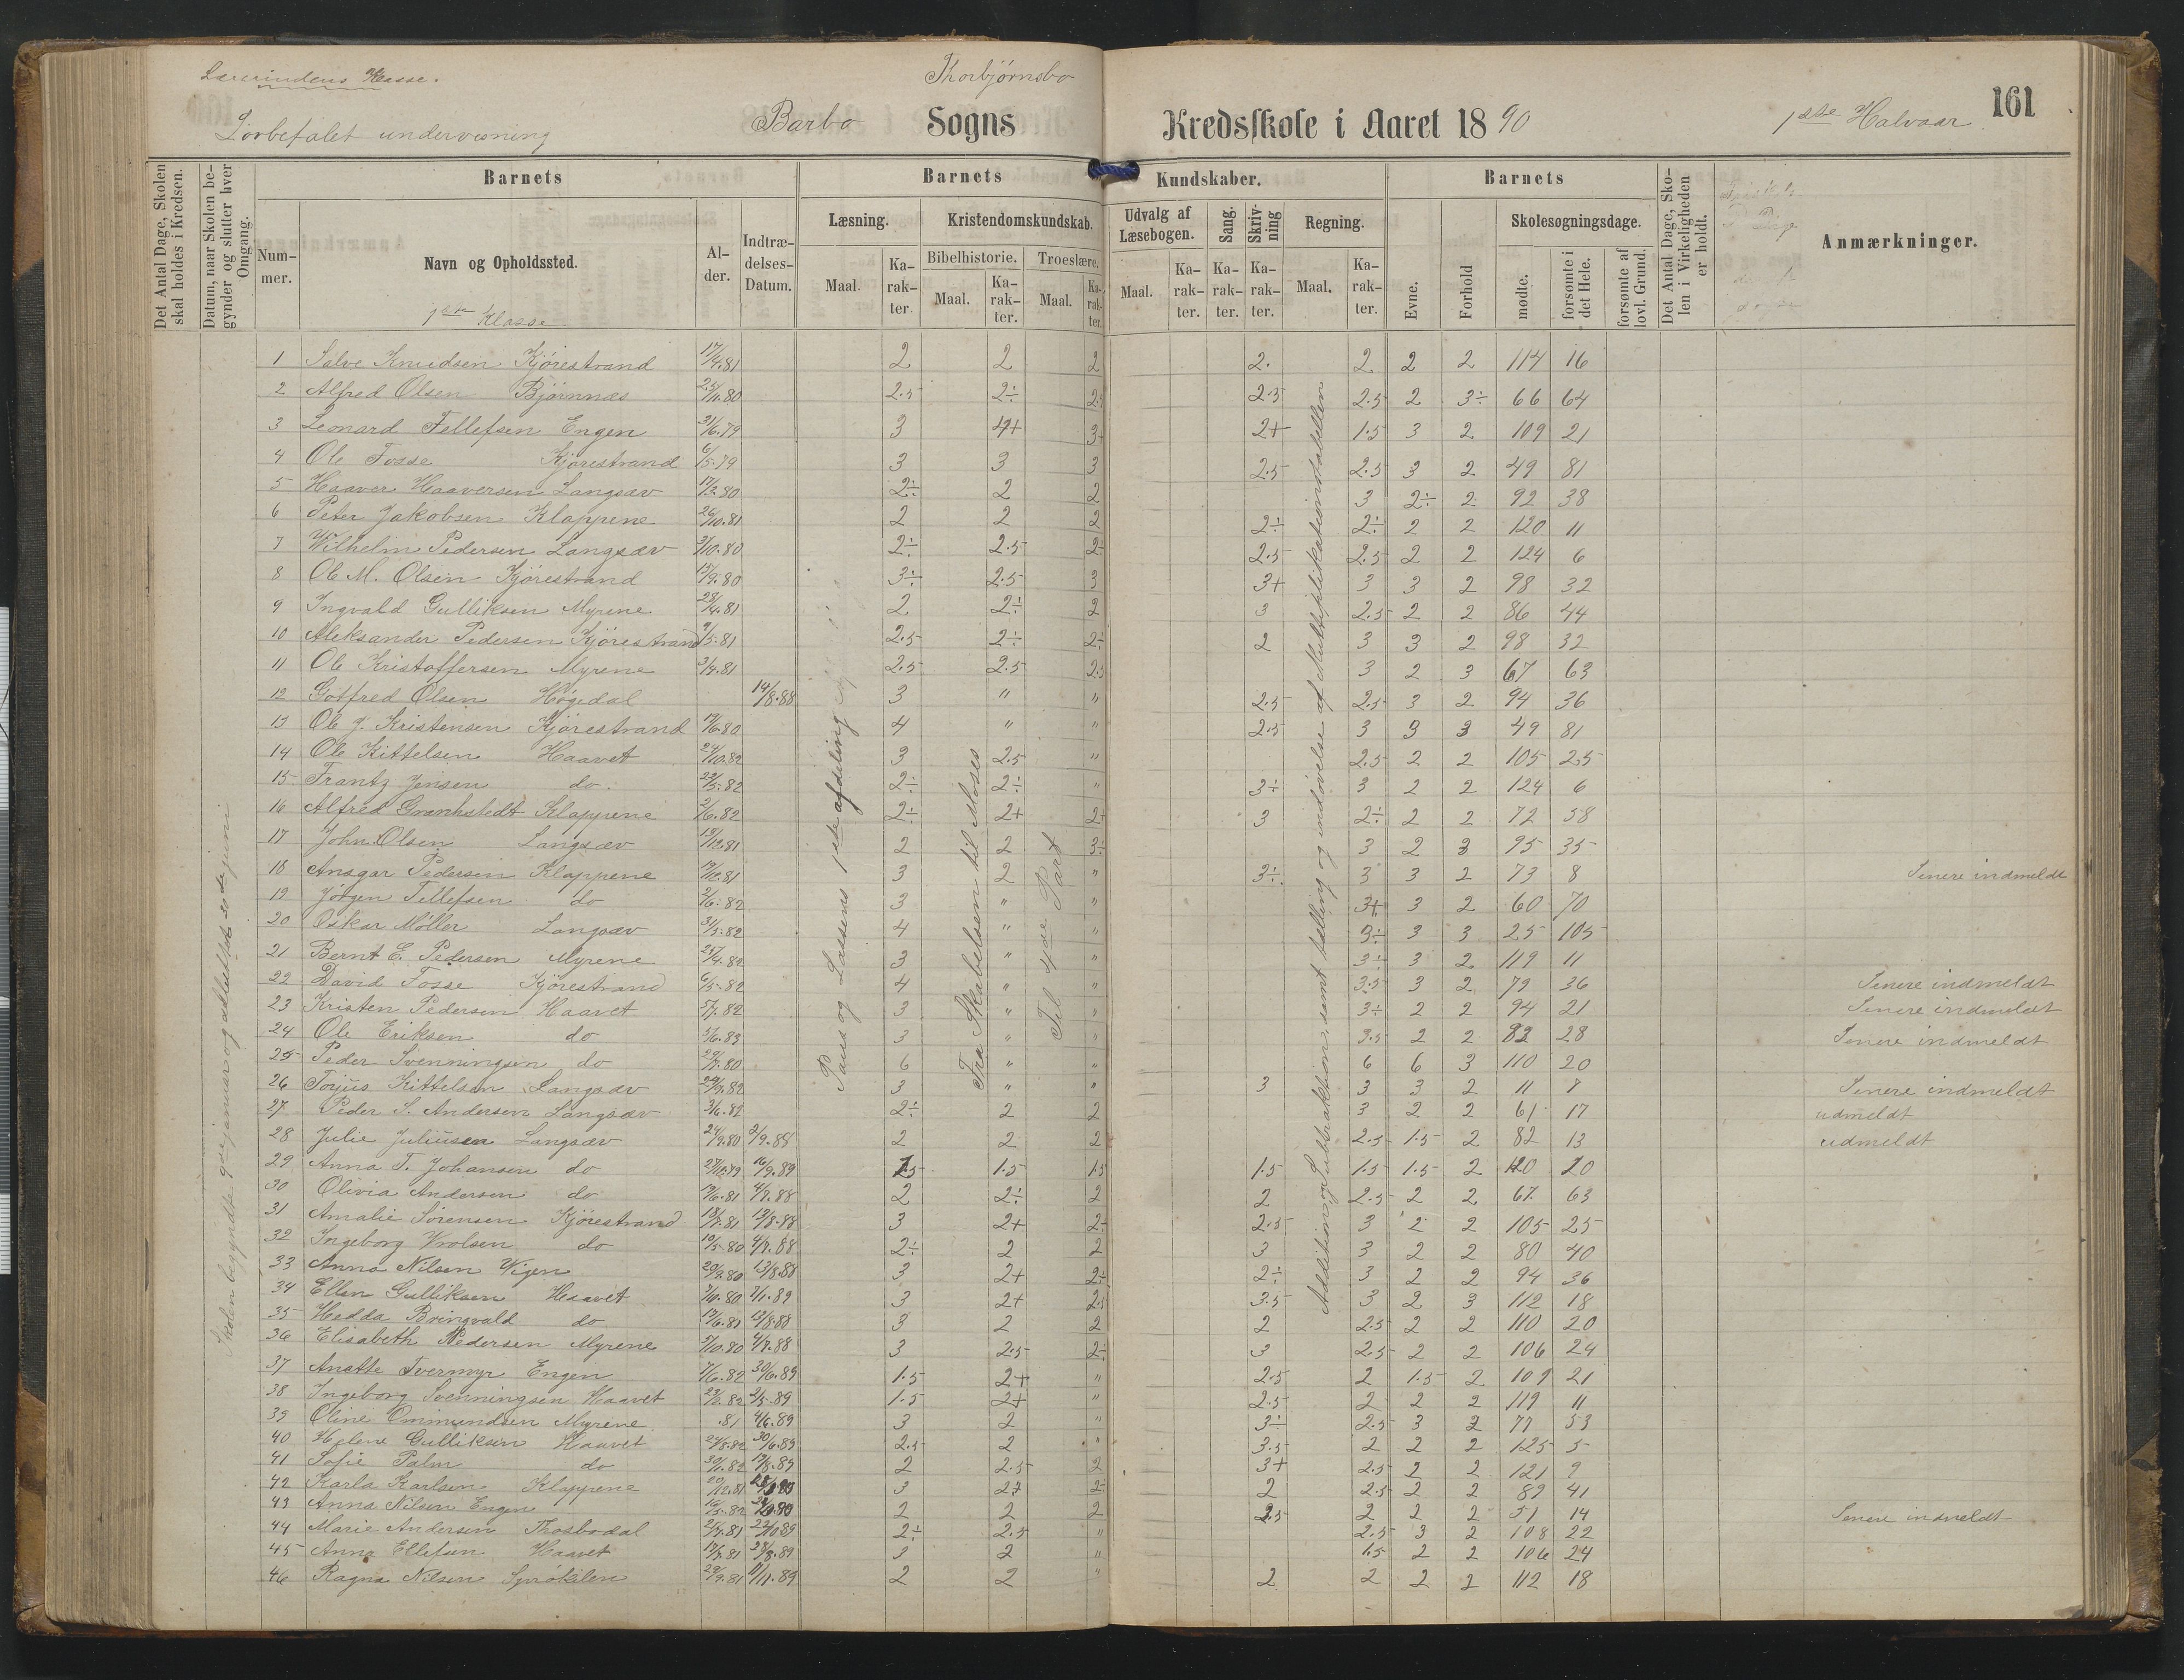 Lærerindens Klasse.
Thorbjørnsbo
Lovbefalet undervisning
Barbo Sogns Kredsskole i Aaret 1890
1ste Halvaar
161
Det Antal Dage, Skolen skal holdes i Kredsen.
Datum, naar Skolen begynder og slutter hver Omgang.
Barnets
Nummer.
Navn og Opholdssted.
Alder.
Indtrædelses-Datum.
Barnets Kundskaber.
Læsning.
Maal.
Karakter.
Kristendomskundskab.
Bibelhistorie.
Maal.
Karakter.
Troeslære.
Maal.
Karakter.
Udvalg af Læsebogen.
Maal.
Karakter.
Sang.
Karakter.
Skrivning
Karakter.
Regning.
Maal.
Karakter.
Barnets
Evne.
Forhold
Skolesøgningsdage.
mødte.
forsømte i det Hele.
forsømte af lovl. Grund.
Det Antal Dage, Skolen i Virkeligheden er holdt.
Anmærkninger.
1ste Klasse
Skolen begyndte 9de januar og sluttet 20de juni
Paus og Lassens 1ste afdeling
Fra Skabelsen til Moses
Til 4de Part
Addition og Subtraktion, samt tælling og indøvelse af Multiplikationstabellen
1 Salve Knudsen Kjörestrand 17/4.81 2 2 2 2. 2 2 2 114 16
2 Alfred Olsen Bjørnnæs 23/11.80 2.5 2÷ 2.5 2.5 2.5 2 3÷ 66 64
3 Leonard Tellefsen Engen 31/6.79 3 4+ 3+ 2+ 1.5 3 2 109 21
4 Ole Fosse Kjørestrand 6/5.79 3 3 3 2.5 2.5 3 2 49 81
5 Haaver Haaversen Langsæv 17/3.80 2÷ 2 2 3 2÷ 2 92 38
6 Peter Jakobsen Klappene 26/10.81 2 2 2 2÷ 2÷ 2 2 120 11
7 Wilhelm Pedersen Langsæv 3/10.80 2÷ 2.5 2÷ 2.5 2.5 2 2 124 6
8 Ole M. Olsen Kjörestrand 15/9.80 3÷ 2.5 3 3+ 3 3 2 98 32
9 Ingvald Gulliksen Myrene 28/4.81 2 2÷ 2 3 2.5 2 2 86 44
10 Aleksander Pedersen Kjörestrand 9/5.81 2.5 2÷ 2÷ 2 3 3 2 98 32
11 Ole Kristoffersen Myrene 3/4.81 2.5 2.5 2.5 3 2 3 67 63
12 Gotfred Olsen Høgedal 14/8.88 3 " " 2.5 2.5 3 2 94 36
13 Ole J. Kristensen Kjörestrand 17/6.80 4 " " 2.5 3 3 3 49 81
14 Ole Kittelsen Haavet 24/10.82 3 2.5 " 2.5 2 2 105 25
15 Frantz Jensen do. 22/5.82 2÷ 2÷ " 3÷ 3 2 2 124 6
16 Alfred Grankstedt Klappene 2/6.82 2÷ 2+ 2+ 3 2÷ 2 2 72 58
17 John Olsen Langsæv 13/12.81 2 2 3÷ 3 2 3 95 35
18 Ansgar Pedersen Klappene 17/12.81 3 2 " 3÷ 3 3 2 73 8 Senere indmeldt
19 Jörgen Tellefsen do 2/6.82 3 " " 3+ 3 2 60 70
20 Oskar Møller Langsæv 31/5.82 4 " " 3÷ 3 3 25 105
21 Bernt E. Pedersen Myrene 25/4.82 3 " " 3÷ 3 2 119 11
22 David Fosse Kjörestrand 6/5.82 4 " " 3.5 3 2 79 36 Senere indmeldt
23 Kristen Pedersen Haavet 5/7.82 3 " " 3÷ 2 2 94 21 Senere indmeldt
24 Ole Eriksen do 5/6.83 3 " " 3.5 2 2 82 28 Senere indmeldt
25 Peder Svenningsen do 6 " " 6 6 3 110 20
26 Torjus Kittelsen Langsæv 3 " " 3 3 3 2 11 8 Senere indmeldt
27 Peder S. Andersen Langsæv 3/6.82 2÷ 2 2 3 2 2 61 17 udmeldt
28 Julie Juliusen Langsæv 24/9.80 2/9.88 2 2 2 2.5 1.5 2 82 13 udmeldt
29 Anna T. Johansen do 27/10.79 16/9.89 1.5 1.5 1.5 1.5 1.5 2 120 20
30 Olivia Andersen do 17/6.81 4/8.88 2 2÷ 2 2 2.5 2 2 67 63
31 Amalie Sørensen Kjörestrand 13/8.88 3 2+ 2÷ 2.5 3 2 2 105 25
32 Ingeborg Vrolsen do 10/5.80 4/8.88 2÷ 2 2 3 3 2 2 80 40
33 Anna Nilsen Vigen 20/9.80 13/8.88 3 2+ 2÷ 2÷ 3 2 2 94 36
34 Ellen Gulliksen Haavet 3 2+ 2.5 3.5 3 2 3 112 18
35 Hedda Bringvald do 3 2 2 2 2.5 2 2 110 20
36 Elisabeth Pedersen Myrene 5/10.80 4/8.88 3 2.5 2÷ 3 2.5 2 2 106 24
37 Anette Tvermyr Engen 7/6.82 30/6.89 1.5 2+ " 2.5 2 1.5 2 109 21
38 Ingeborg Svenningsen Haavet 2/5.89 1.5 2+ " 2.5 2 2 2 119 11
39 Oline Ommundsen Myrene .81 4/6.89 3 2 " 3÷ 2.5 3 2 77 53
40 Helene Gulliksen Haavet 24/8.82 30/6.89 2.5 2 " 3.5 2 2 2 125 5
41 Sofie Palm do 2 2.5 2 3+ 2.5 2 2 121 9
42 Karla Karlsen Klappene 20/12.81 3 2÷ 2 2.5 2 2 89 41
43 Anna Nilsen Engen 2 2 2 2.5 2 2 2 51 14 Senere indmeldt
44 Marie Andersen Thosbodal 22/10.89 2÷ 2.5 " 2.5 3 2 108 22
45 Anna Ellefsen Haavet 28/8.89 3 2 " 1.5 2 2 106 24
46 Ragna Nilsen 29/9.81 11/11.89 2 2 " 2 2 2 2 112 18